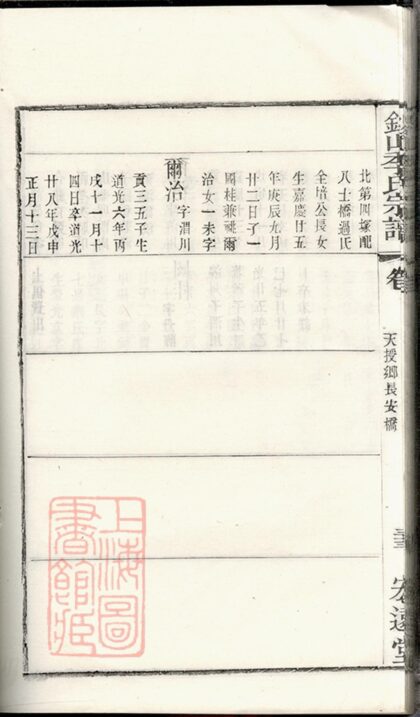 錫山李氏宗譜
卷
天授鄉長安橋
宏遠堂
北第四塚配
八士橋過氏
全培公長女
生嘉慶廿五
年庚辰九月
廿二日子一
國桂兼祧爾
治女一未字
爾治 字渭川
貢三五子生
道光六年丙
戌十一月十
四日卒道光
廿八年戊申
正月十三日
上海圖
書館藏